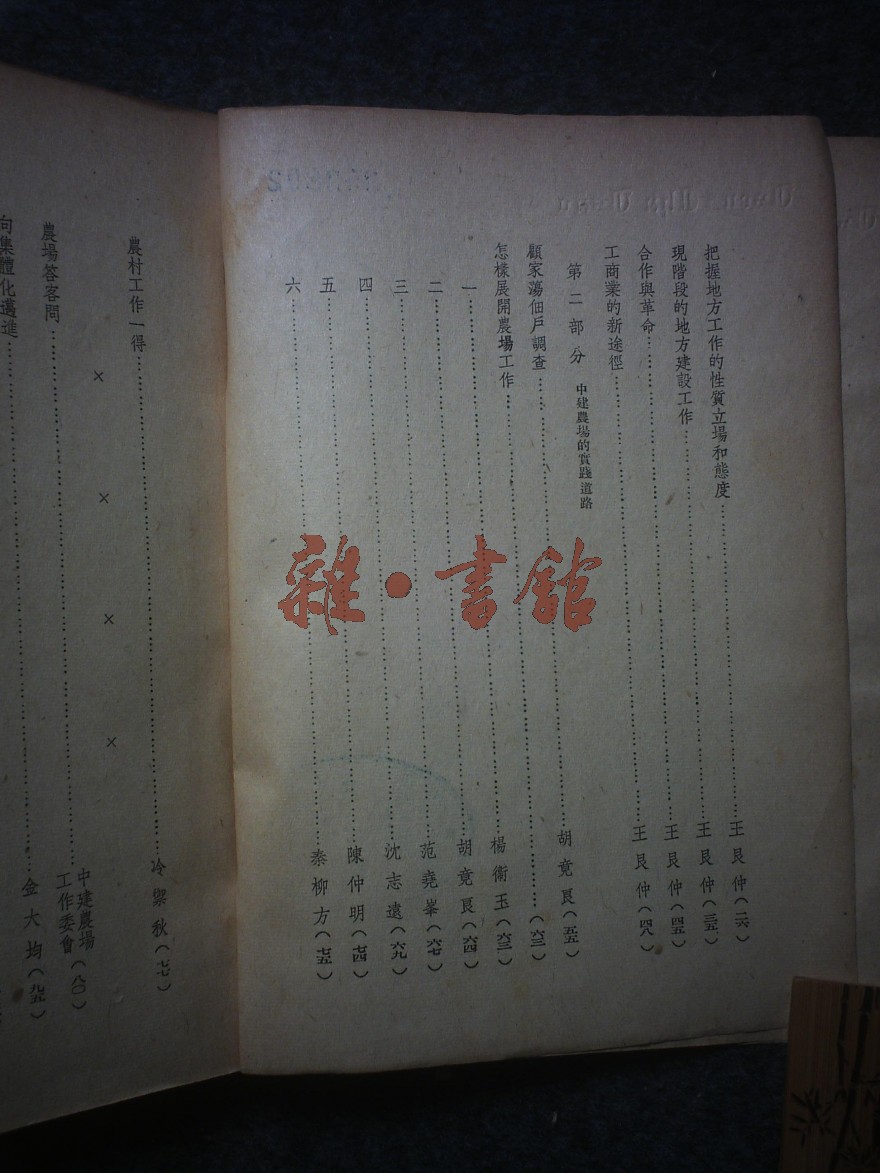 把握地方工作的性質立場和態度……王艮仲（二六）
現階段的地方建設工作……王艮仲（三五）
合作與革命……王艮仲（四五）
工商業的新途徑……王艮仲（四八）
第二部分 中建農場的實踐道路
顧家蕩佃戶調查……胡竟良（五五）
怎樣展開農場工作……（六三）
一……楊衛玉（六三）
二……胡竟良（六四）
三……范堯峯（六七）
四……沈志遠（六九）
五……陳仲明（七四）
六……秦柳方（七五）
× × × ×
農村工作一得……冷禦秋（七七）
農場答客問……中建農場工作委會（八〇）
向集體化邁進……金大均（九五）
雜·書館